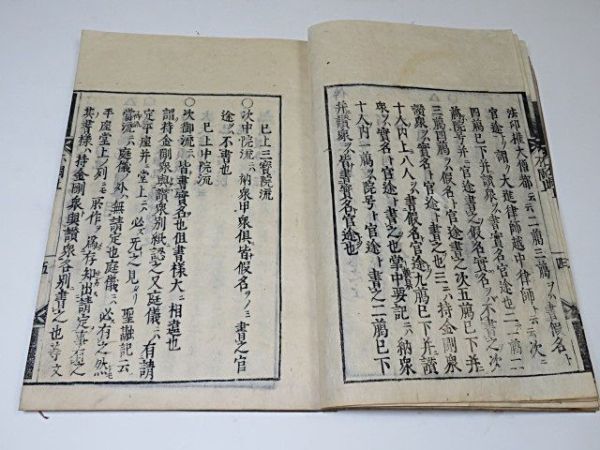 法印權大僧都ト云云二﨟三﨟ヲハ書假名ト
官途ト謂ク大進律師越中律師ト云云次ニ
四﨟已下并讃衆ハ書實名官途也
﨟院号ト官途ト書之次五﨟已下并
三﨟已下ハ假名ト官途ト書之也三ニハ持金剛衆
讃衆ハ實名ト官途ト書之也堂中要記ニハ納衆
十人内上八人ハ假名官途九﨟已下并讃
衆ハ實名ト官途ト書之
十人内一﨟ハ院号ト官途ト書之二﨟已下
并讃衆ハ書實名官途也
已上三寳院流
○次中院流ニハ納衆甲衆俱ニ皆假名ヲノミ書之官
途ヲハ不書也
已上中院流
○次御流ニハ皆書實名也但書樣大ニ相違也
謂ク持金剛衆與讃衆別紙ニ認之又庭儀ニハ有請
定平座并ニ堂上ニハ必无之見タリ聖識記ニ云
當流ニハ庭儀ノ外無請定也庭儀ニハ必有之然
平座堂上ノ刻モ爲存知出請定事有之
其書樣ハ持金剛衆與讃衆各別書之也等文
五
四